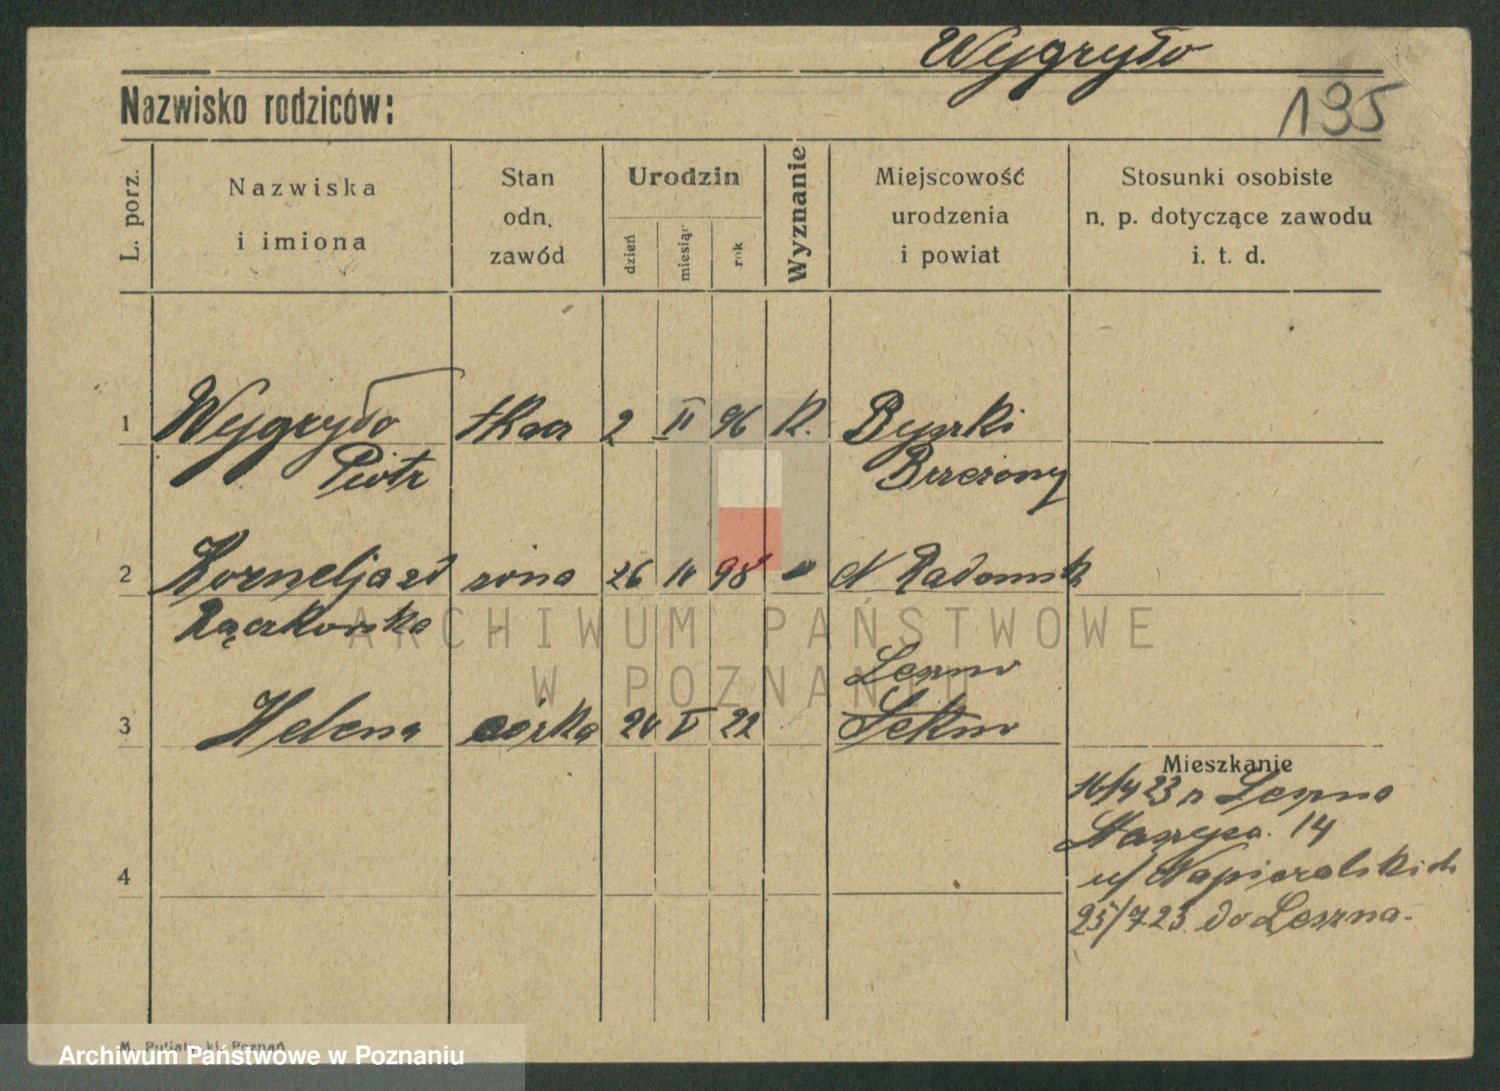 Wygryło
Nazwisko rodziców:
195
L. porz.
Nazwiska
i imiona
Stan
odn.
zawód
Urodzin
dzień
miesiąc
rok
Wyznanie
Miejscowość
urodzenia
i powiat
Stosunki osobiste
n. p. dotyczące zawodu
i. t. d.
1 Wygryło tkacz 2 II 96 K. Byszki
Piotr Brzeziny
2 Kornelja zd żona 26 IV 98 " N Radomsk
Rączkowska
Leszno
3 Helena córka 24 V 22
Mieszkanie
16/4 23 z Leszna
14
u/ Napieralskich
25/7 23. do Leszna.
4
M. Putiatycki, Poznań
ARCHIWUM PAŃSTWOWE
W POZNANIU
Archiwum Państwowe w Poznaniu